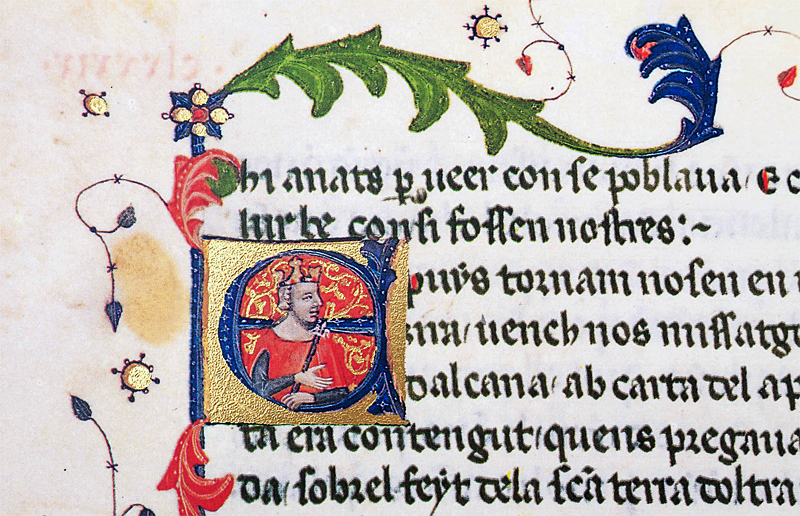 hi anats ꝑ ueer con se poblaua / E c
lur be con si fossen nostres:~
E puys tornam nosen en
uench nos missatge
dalcana / ab carta del ap
ta era contengut / quens pregaua
da / sobrel feyt dela scā terra doltra